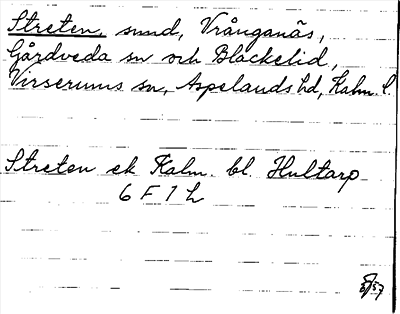 Streten, sund, Vrånganäs,
Gårdveda sn och Blackelid,
Virserums sn, Aspelands hd, Kalm. l.
Streten ek Kalm. bl. Hultarp
6 F 1 h